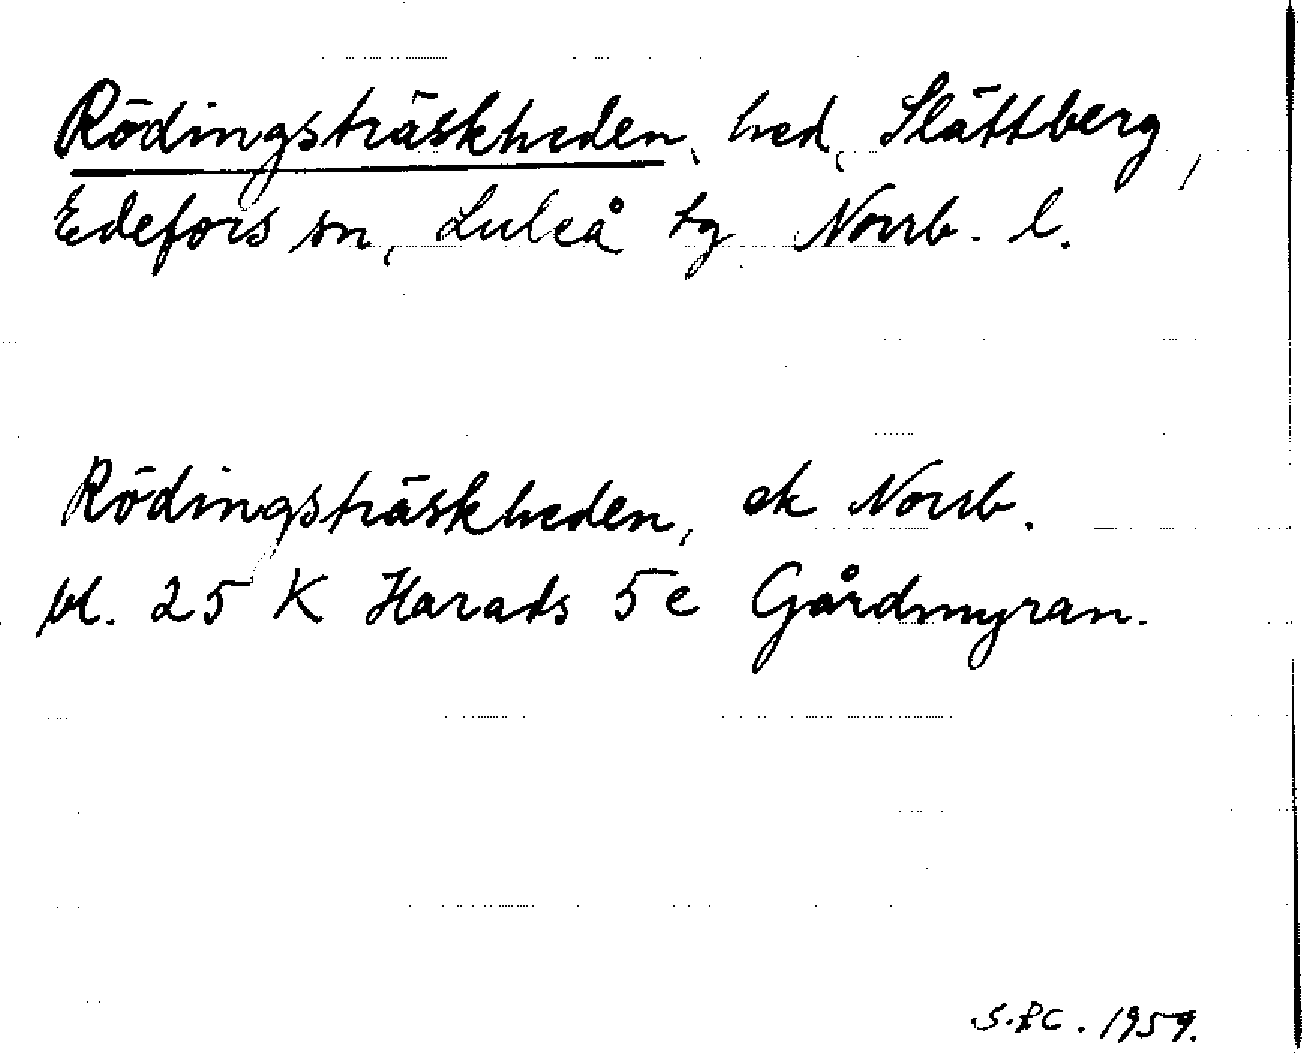 Rödingsträskheden, hed, Slättberg,
Edefors sn, Luleå tg Norrb. l.
Rödingsträskheden, ek Norrb.
bl. 25 K Harads 5 e Gårdmyran.
1959.